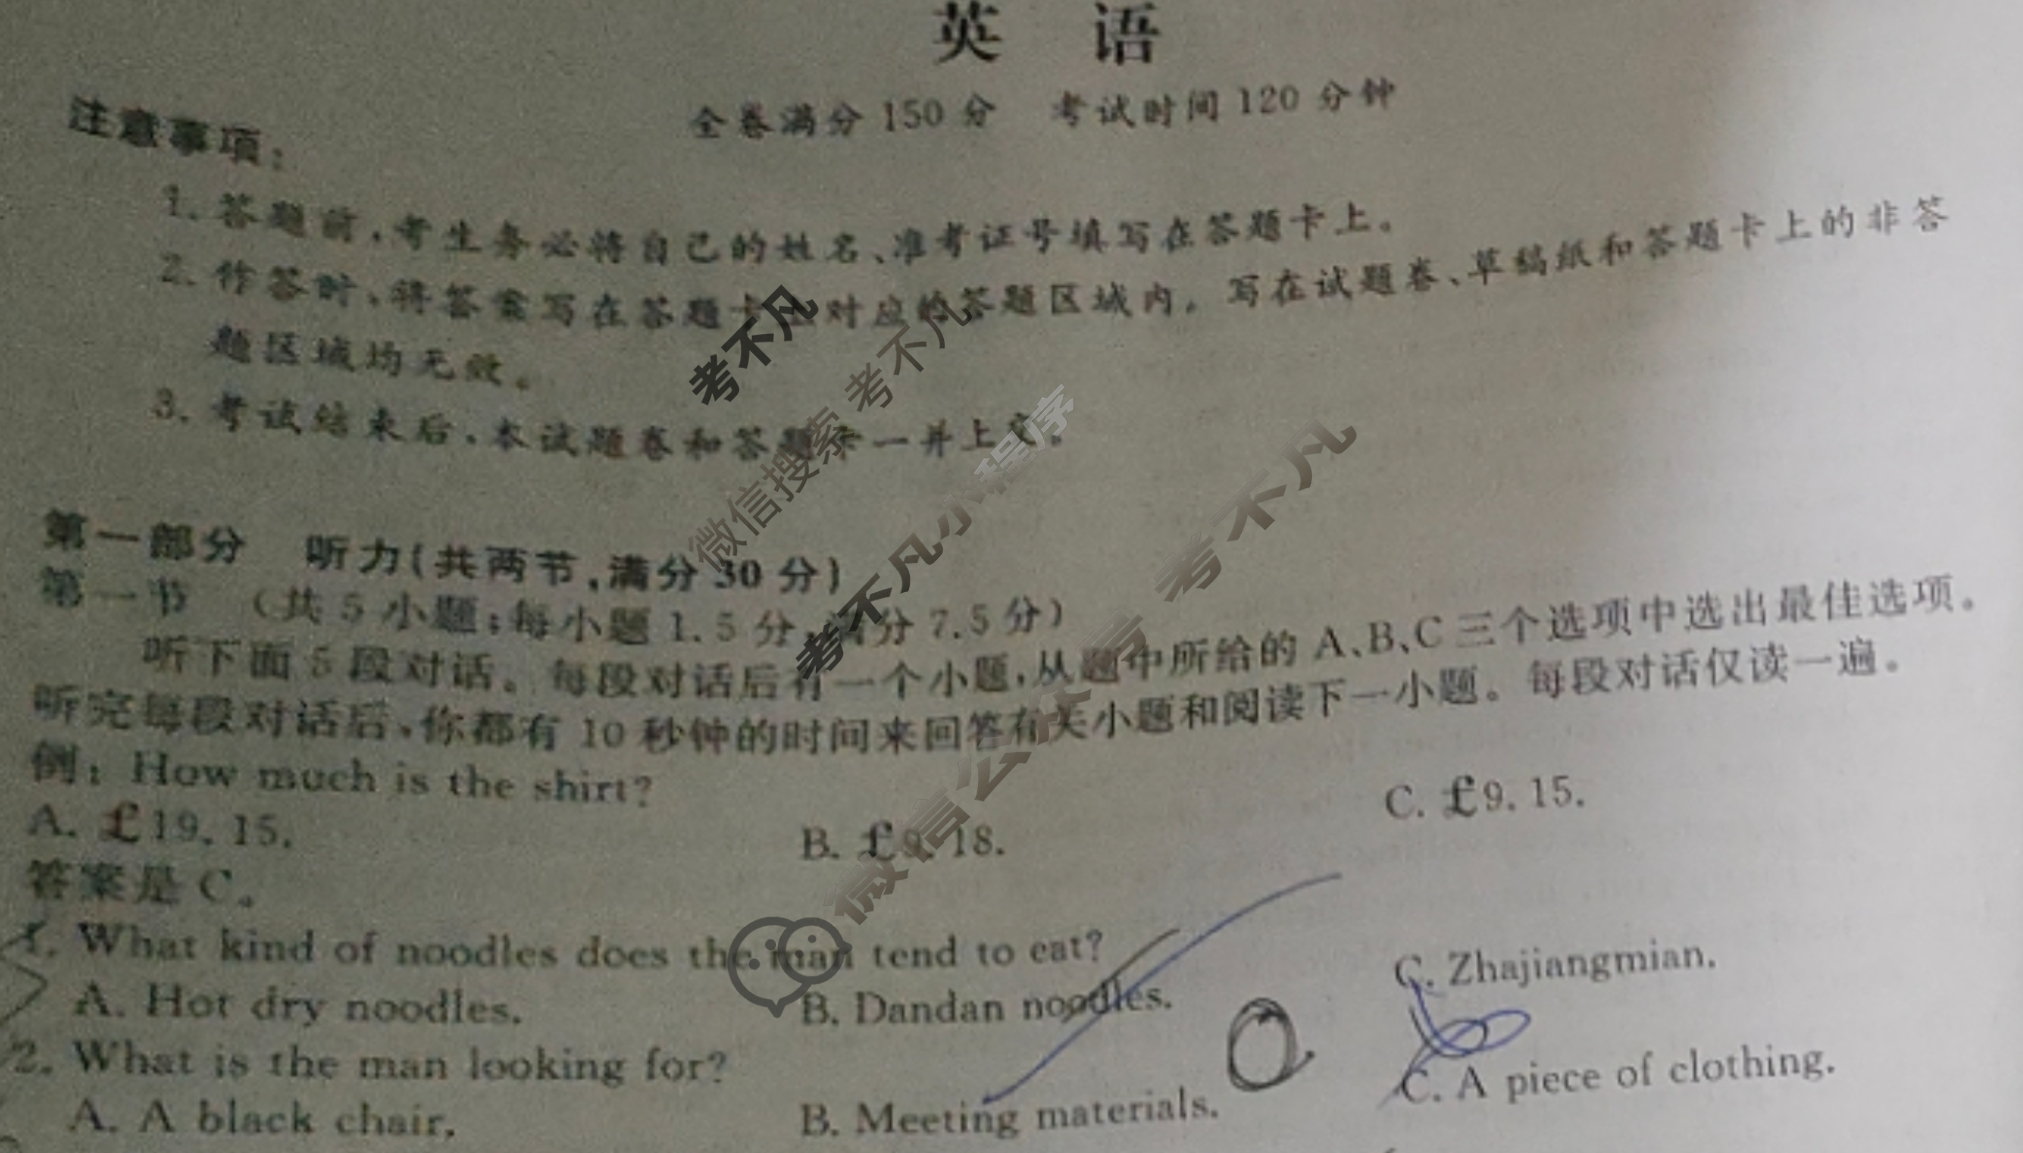 英 语
全卷满分 150 分 考试时间 120 分钟
注意事项：
1. 答题前，考生务必将自己的姓名、准考证号填写在答题卡上。
2. 作答时，将答案写在答题卡上对应的答题区域内。写在试题卷、草稿纸和答题卡上的非答
题区域均无效。
3. 考试结束后，本试题卷和答题卡一并上交。
第一部分 听力（共两节，满分 30 分）
第一节 （共 5 小题；每小题 1.5 分，满分 7.5 分）
听下面 5 段对话。每段对话后有一个小题，从题中所给的 A、B、C 三个选项中选出最佳选项。
听完每段对话后，你都有 10 秒钟的时间来回答有关小题和阅读下一小题。每段对话仅读一遍。
例：How much is the shirt?
A. £19.15. B. £9.18. C. £9.15.
答案是 C。
1. What kind of noodles does the man tend to eat?
A. Hot dry noodles. B. Dandan noodles. C. Zhajiangmian.
2. What is the man looking for?
A. A black chair. B. Meeting materials. C. A piece of clothing.
考不凡
微信搜索 考不凡
考不凡小程序
微信公众号 考不凡